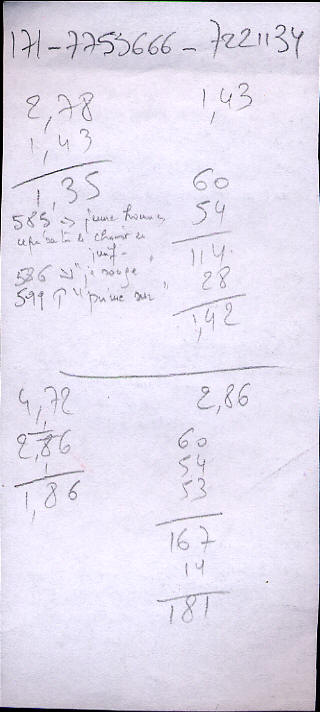 171-7753666-7221134
2,78
1,43
1,35
585 → jeune homme
586 → "je rouge"
599 "prime sur"
4,72
2,86
1,86
1,43
60
54
114
28
1,42
2,86
60
54
53
167
14
181